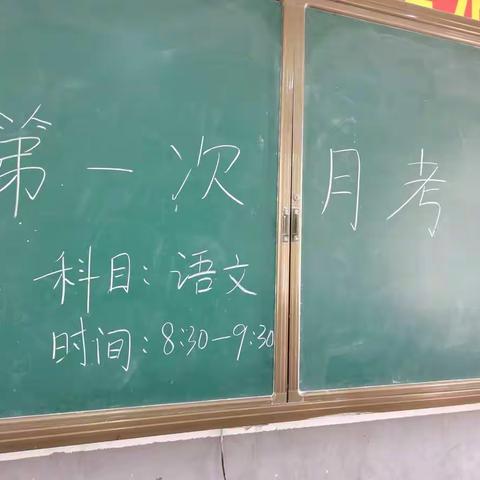 第一次月考
科目：语文
时间：8:30-9:30